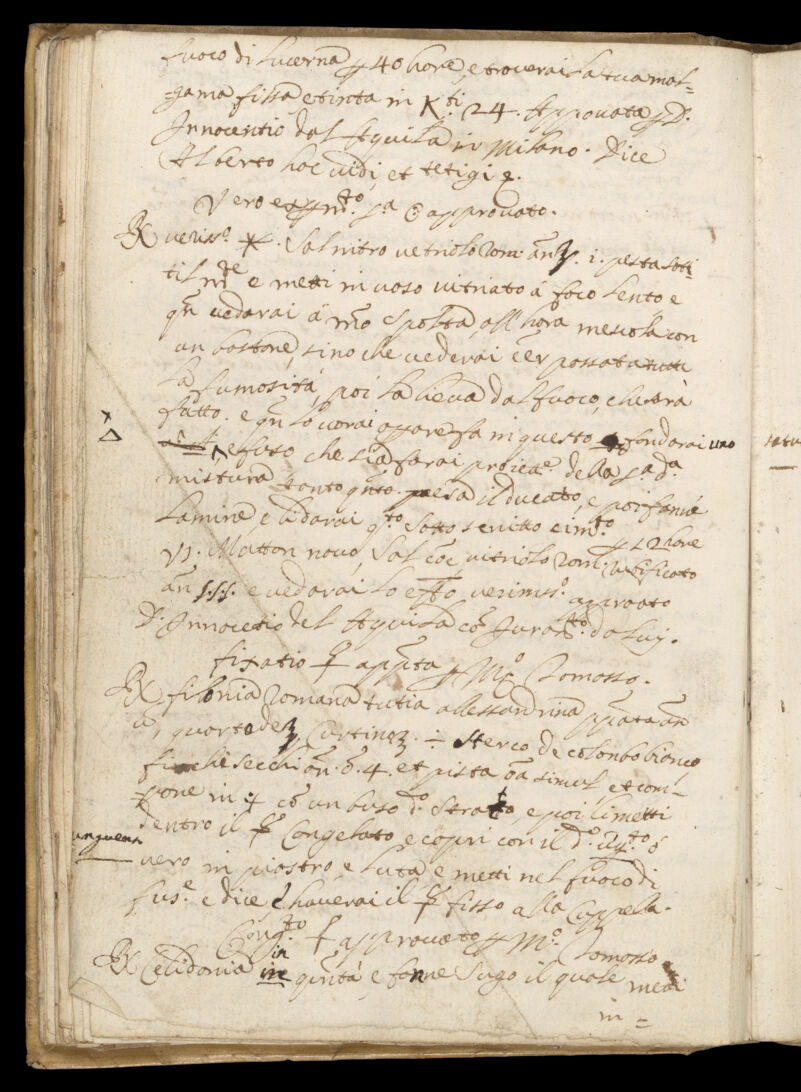 fuoco di lucerna p 40 hore, e troverai la tua mal=
=gama fissa, e tinta in K.ti 24. Approuata p D.
Innocentio dal Aquila in Milano. Dice
Alberto hoc uidi, et tetigi
Vero expm.to p.a approuato.
Rx veriss.o Sal nitro uetriolo rom: an ℥. i. pesta soti=
til m.te e metti in uoso uitriato á foco lento e
qñ uedarai á mõ spolta, all'hora mescola con
un bastone, sino che uederai eẽr passata tutti
la fumosità, poi la lieua dal fuoco, che sarà
fatto. e qñ lo uorai apparefa in questo fondarai uno
e fuso che sia farai proice.e della p.a d.a
mistura tanto qnto pesa il ducato, e poi fanne
lamine e li darai q.to sotto scritto eim.to p 12 hore
V3. Matton nouo, Sal cõe uitriolo rom: rubificato
an s.s.s. e uedarai lo effto uerimss.o approato
D. Innocẽtio del Aquila cõ Jura.to da luj.
fixatio appta p M.o Tomasso.
Rx filonia romana tutia allessandrina ppata an
quarto de Curtinoz ÷ sterco de colonbo bianco
fiuchi secchi an. õ. 4. et pista oã simul, et com=
=pone in cõ un buso d.o strato e poi li metti
dentro il Congelato e copri con il d.o uy.to ó
unguen
vero in piastro e luta e metti nel fuoco di
fus.e e dice haverai il fisso alla Coppella.
Cong.to approuato p M.o Tomasso
Rx Celidonia in qnta, e fanne Sugo il quale meti
in =